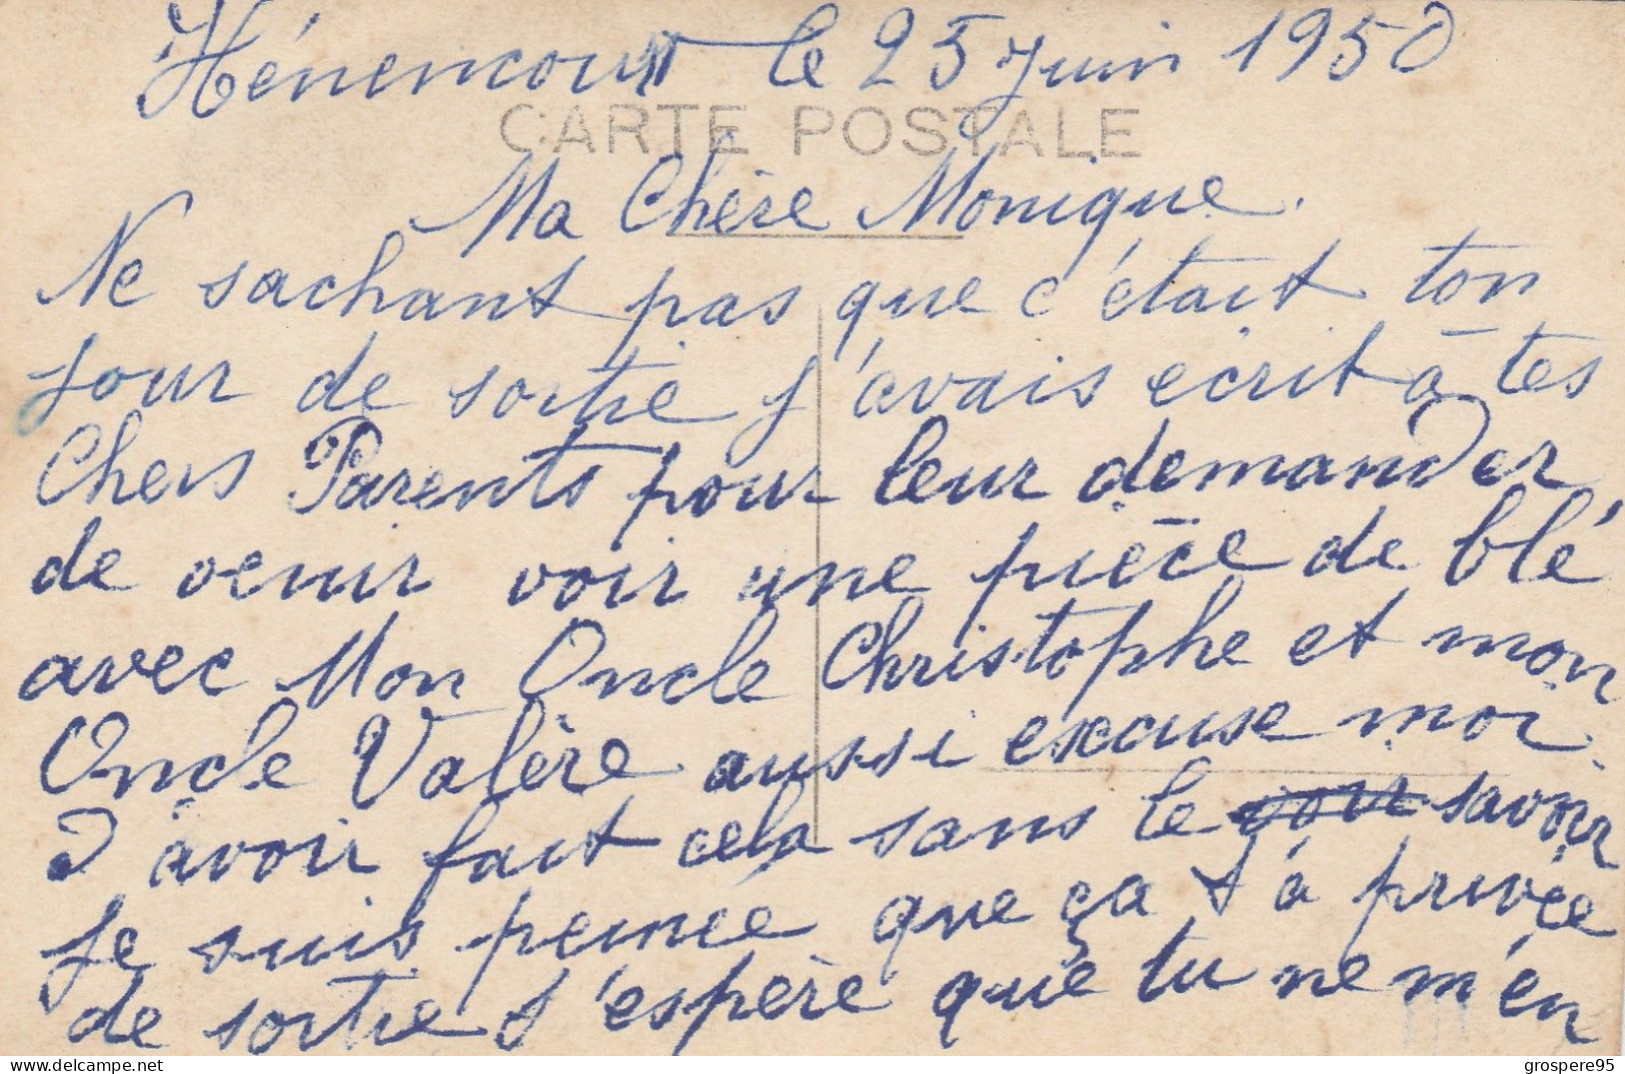 Hénencourt le 25 Juin 1950
CARTE POSTALE
Ma Chère Monique.
Ne sachant pas que c'était ton
jour de sortie j'avais ecrit à tes
Chers Parents pour leur demander
de venir voir une pièce de blé
avec Mon Oncle Christophe et mon
Oncle Valère aussi excuse moi
d'avoir fait cela sans le savoir
Je suis peinée que ça t'a privée
de sortie j'espère que tu ne m'en
delcampe.net
grospere95